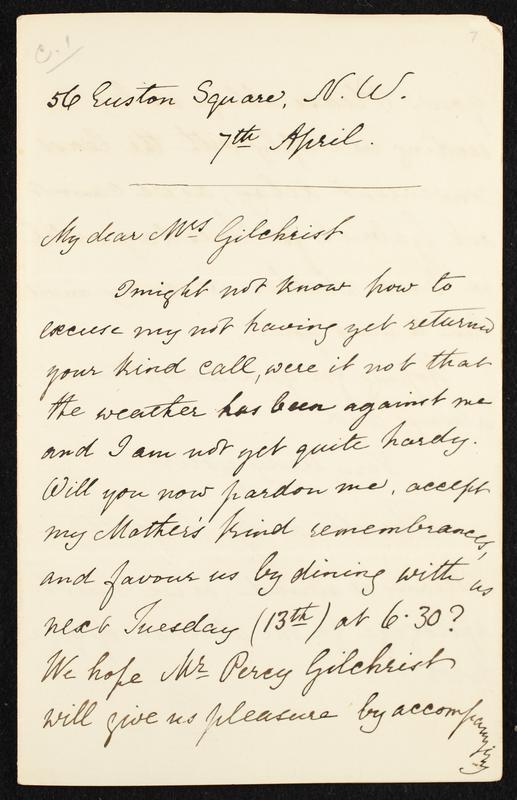 C.1
7
56 Euston Square, N. W.
7th April.
My dear Mrs Gilchrist
I might not know how to
excuse my not having yet returned
your kind call, were it not that
the weather has been against me
and I am not yet quite hardy.
Will you now pardon me, accept
my Mother's kind remembrances,
and favour us by dining with us
next Tuesday (13th) at 6.30?
We hope Mr Percy Gilchrist
will give us pleasure by accompanying